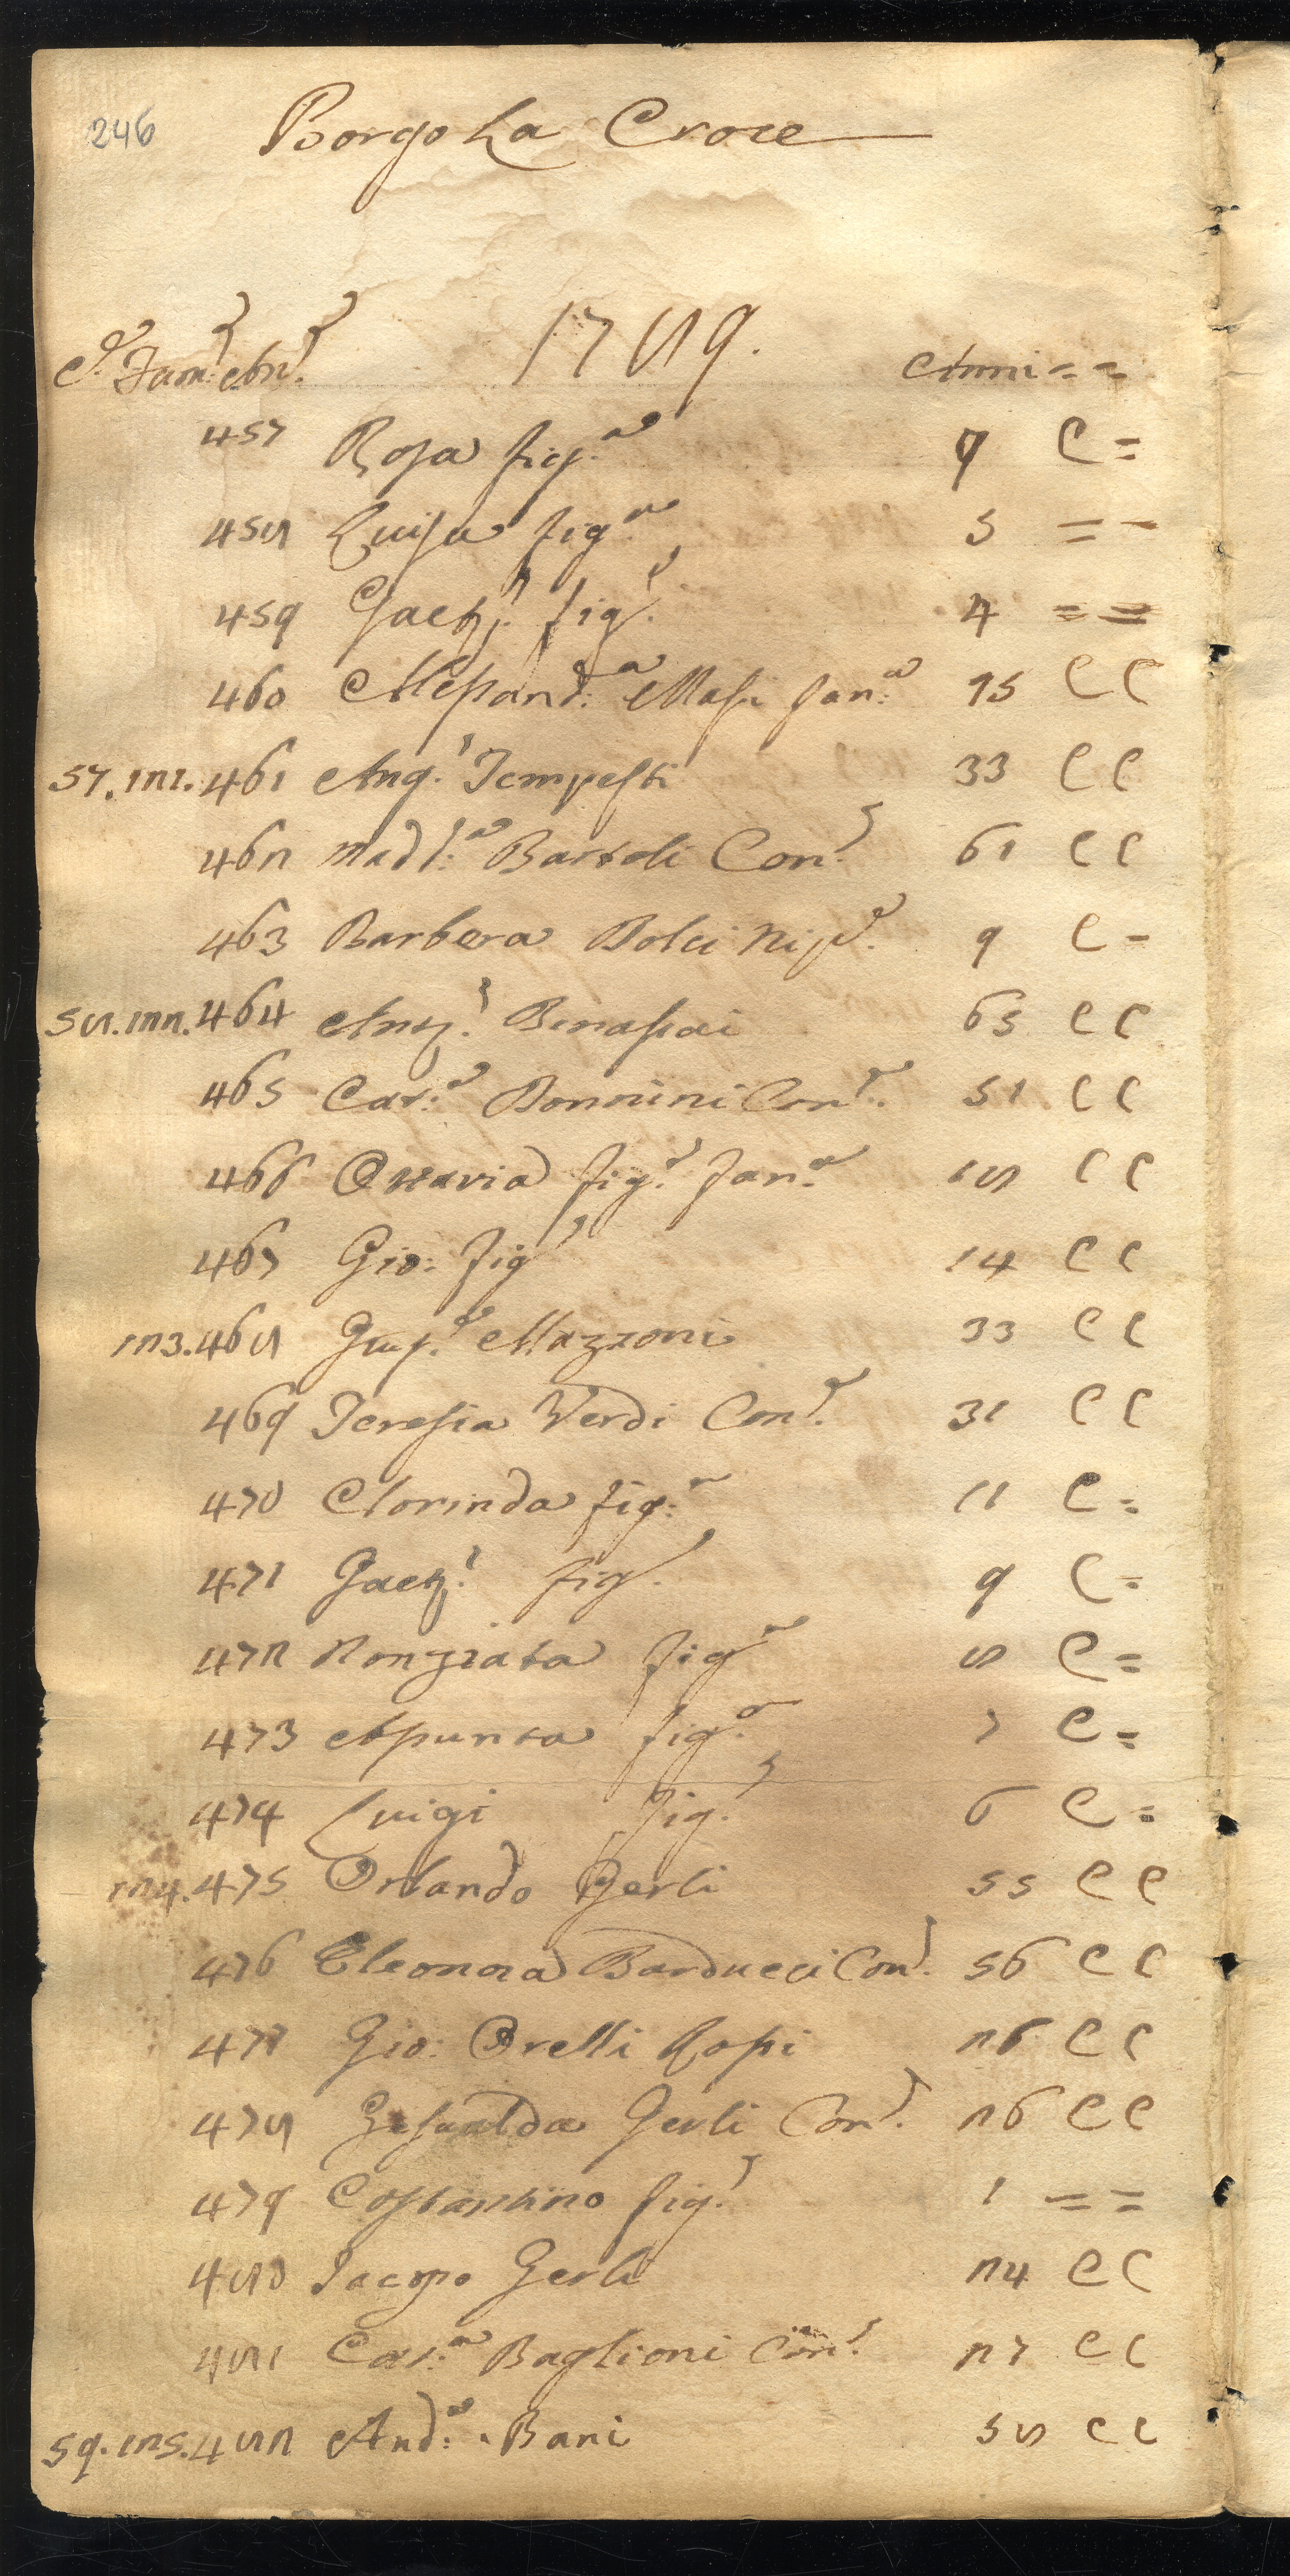 246 Borgo La Croce
1789.
C.e Fam.e An.e Anni = =
457 Rosa fig.a 7 C =
458 Luisa fig.a 5 = =
459 Gaet.o fig.o 4 = =
460 Alessand.a Masi fan.a 15 C C
57. 121. 461 Ang.o Tempesti 33 C C
462 Mad.a Bartoli Con.e 61 C C
463 Barbera Dolci Nip.e 9 C =
58. 122. 464 Ant.o Benassai 65 C C
465 Cat.a Bonnini Con.e 51 C C
466 Ottavia fig.a fan.a 18 C C
467 Gio: fig.o 14 C C
123. 468 Gius.e Mazzoni 33 C C
469 Teresia Verdi Con.e 31 C C
470 Clorinda fig.a 11 C =
471 Gaet.o fig.o 9 C =
472 Nonziata fig.a 8 C =
473 Assunta fig.a 7 C =
474 Luigi fig.o 6 C =
124. 475 Orlando Gerli 55 C C
476 Eleonora Barducci Con.e 56 C C
477 Gio: Orelli Rossi 26 C C
478 Gesualda Gerli Con.e 26 C C
479 Costantino fig.o 1 = =
480 Iacopo Gerli 24 C C
481 Cat.a Baglioni Con.e 27 C C
59. 125. 482 And.a Bani 58 C C